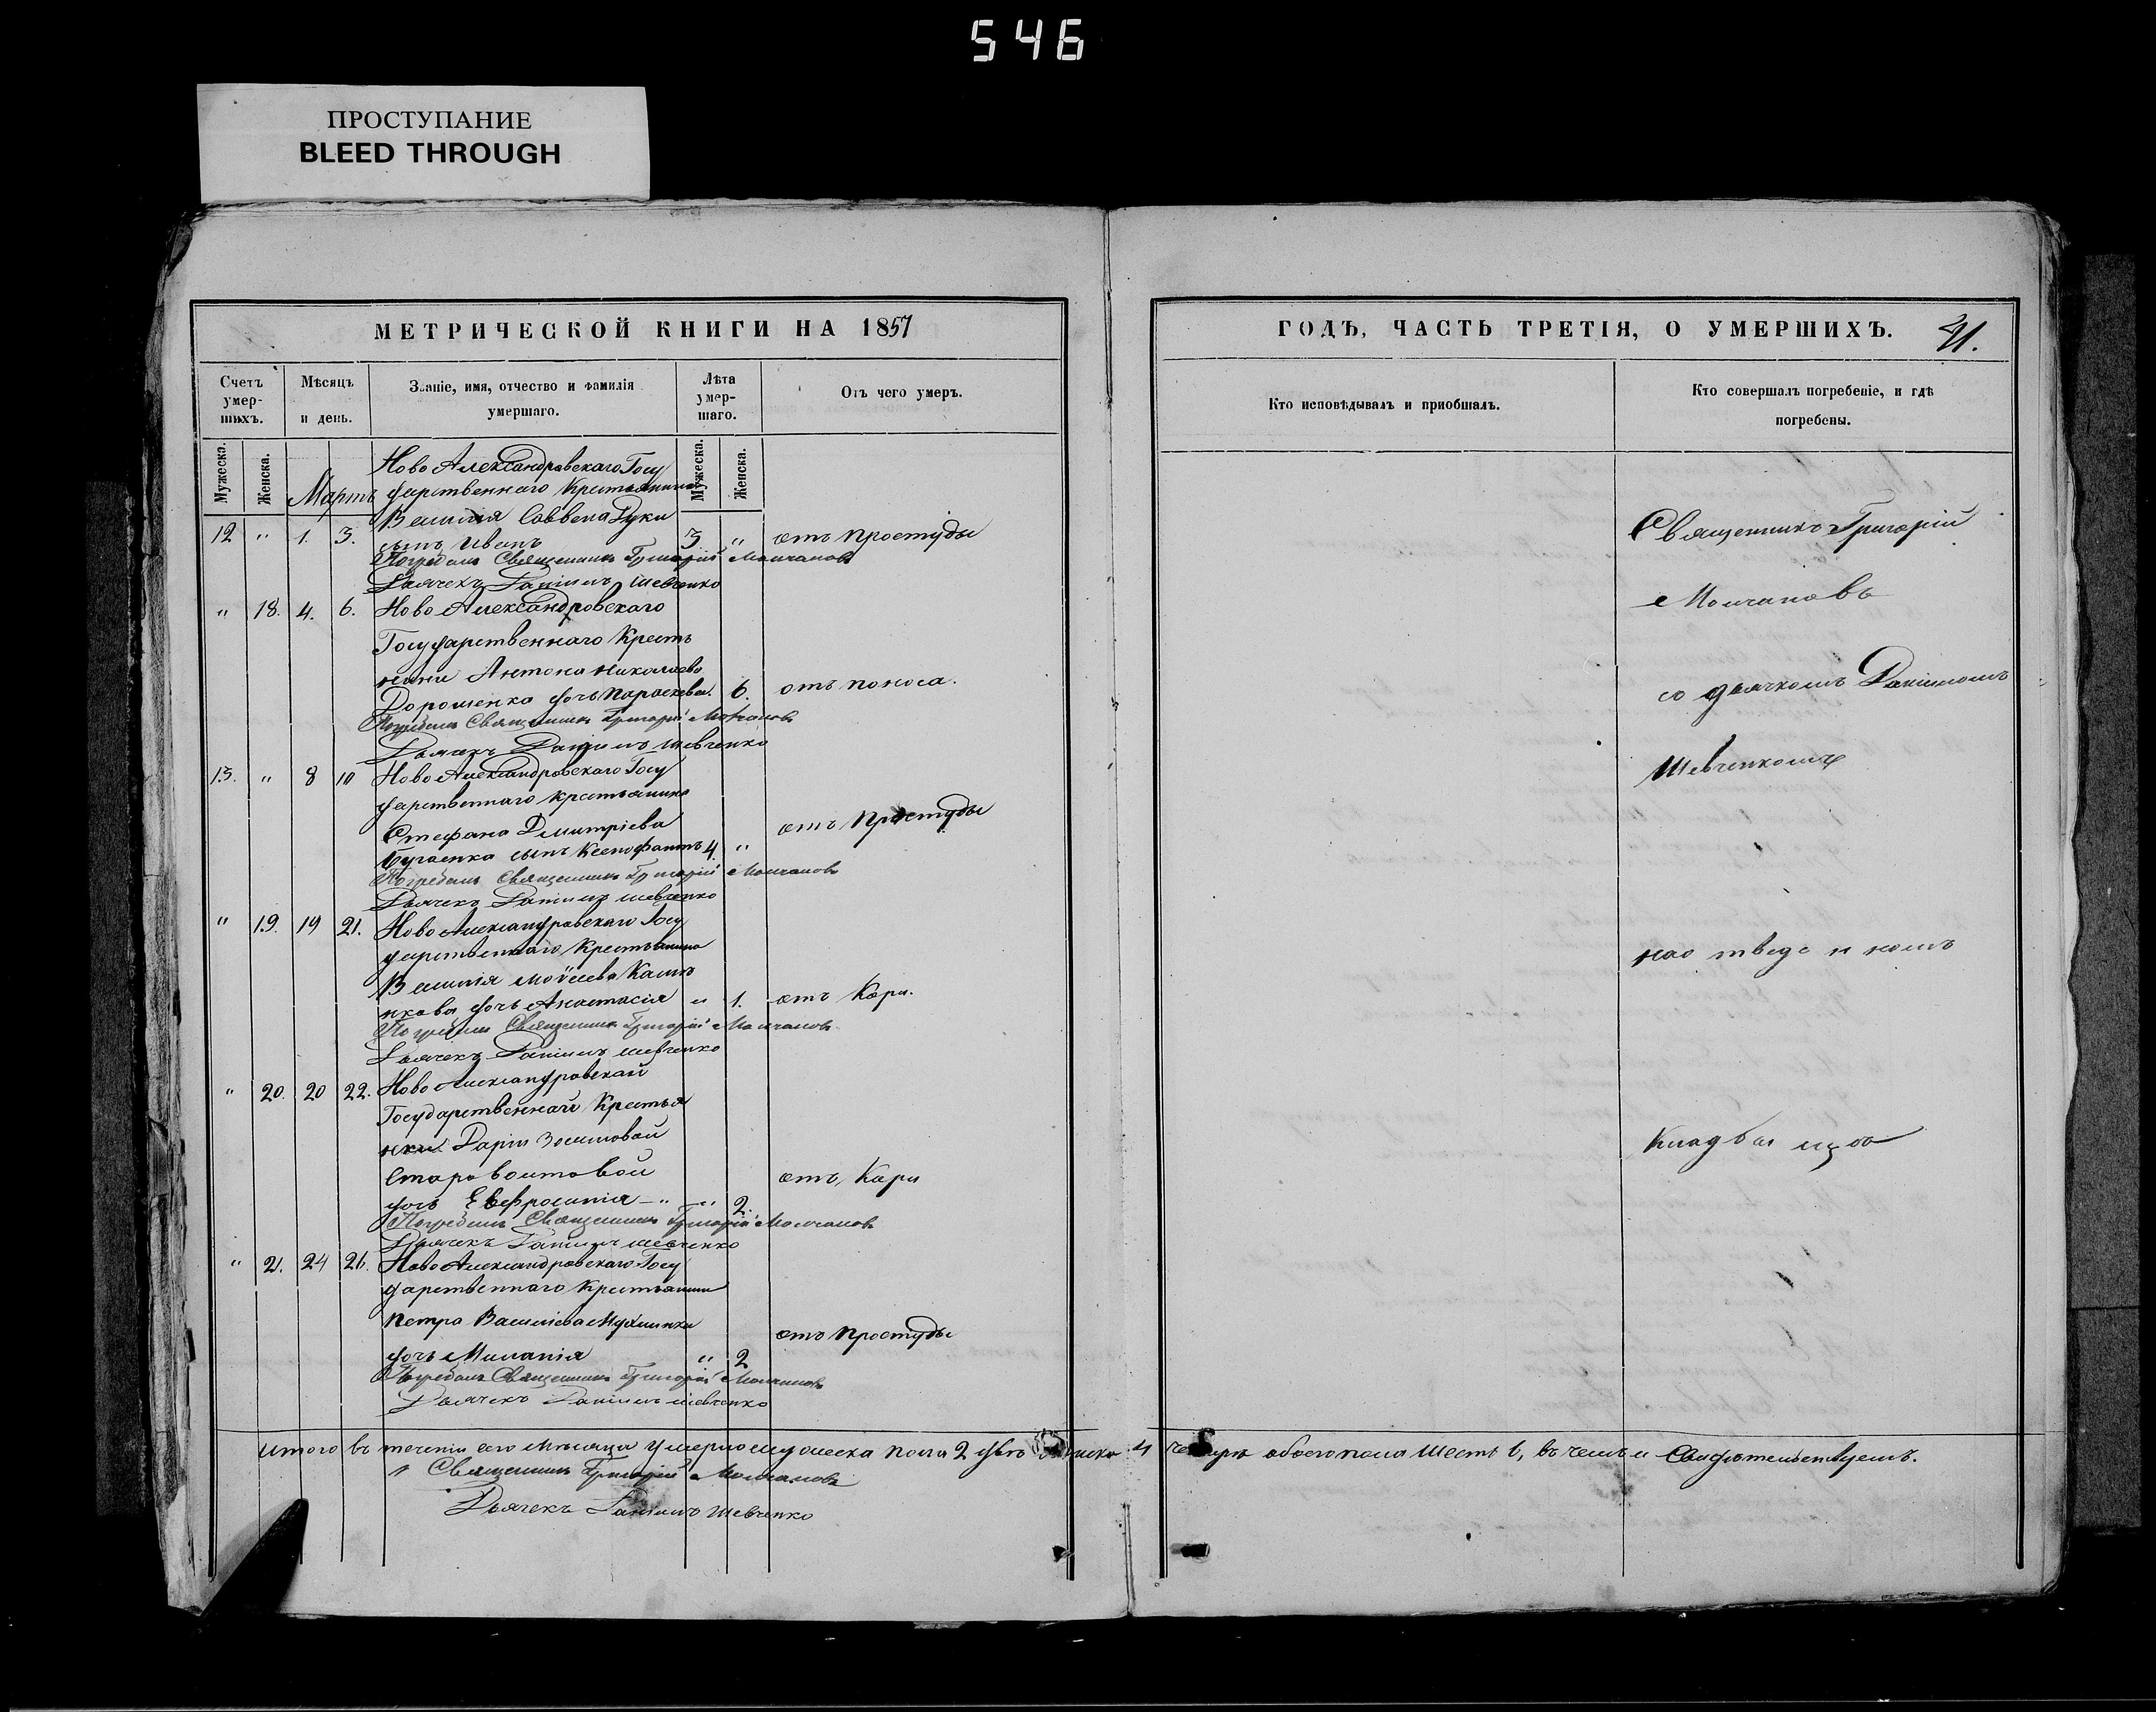 546
ПРОСТУПАНИЕ
BLEED THROUGH
МЕТРИЧЕСКОЙ КНИГИ НА 1857
Счетъ умер-шихъ.
Мѣсяцъ и день.
Званіе, имя, отчество и фамилія умершаго.
Лѣта умер-шаго.
Отъ чего умеръ.
Мужеска.
Женска.
Мартъ
Мужеска.
Женска.
Ново Александровскаго Госу
дарственнаго Крестьянина
Василія Саввена Дуки
12 " 1. 3. сынъ Иванъ 3 " отъ простуды
Погребалъ Священникъ Григорій Молчановъ
Дьячекъ Даніилъ Шевченко
" 18. 4. 6. Ново Александровскаго
Государственнаго Кресть
нина Антона Николаева
Дорошенка дочь Параскева. 6. отъ поноса.
Погребалъ Священникъ Григорій Молчановъ
Дьячекъ Даніилъ Шевченко
13. " 8 10 Ново Александровскаго Госу
дарственнаго крестьянина
Стефана Дмитріева
сынъ Ксенофантъ 4. " отъ Простуды
Погребалъ Священникъ Григорій Молчановъ
Дьячекъ Даніилъ Шевченко
" 19. 19 21. Ново Александровскаго Госу
дарственнаго Крестьянина
Василія Мойсеева
дочь Анастасія " 1. отъ Кори.
Погребалъ Священникъ Григорій Молчановъ
Дьячекъ Даніилъ Шевченко
" 20. 20 22. Ново Александровской
Государственной Крестья
нки Даріи Зосимовой
Старовоитовой отъ Кори
дочь Евфросинія " " 2.
Погребалъ Священникъ Григорій Молчановъ
Дьячекъ Даніилъ Шевченко
" 21. 24 26. Ново Александровскаго Госу
дарственнаго Крестьянина
Петра Василіева отъ простуды
дочь Миланія " 2
Погребалъ Священникъ Григорій Молчановъ
Дьячекъ Даніилъ Шевченко
Итого въ теченіи сего Мѣсяца Умерло мужеска пола 2 два 4 обоего пола шесть 6, въ чемъ и Свидѣтельствуемъ.
Священникъ Григорій Молчановъ
Дьячекъ Даніилъ Шевченко
ГОДЪ, ЧАСТЬ ТРЕТІЯ, О УМЕРШИХЪ.
Кто исповѣдывалъ и пріобщалъ.
Кто совершалъ погребеніе, и гдѣ погребены.
Священникъ Григорій
Молчановъ
со дьячкомъ Даніиломъ
Шевченкомъ
на отведенномъ
Кладбищѣ